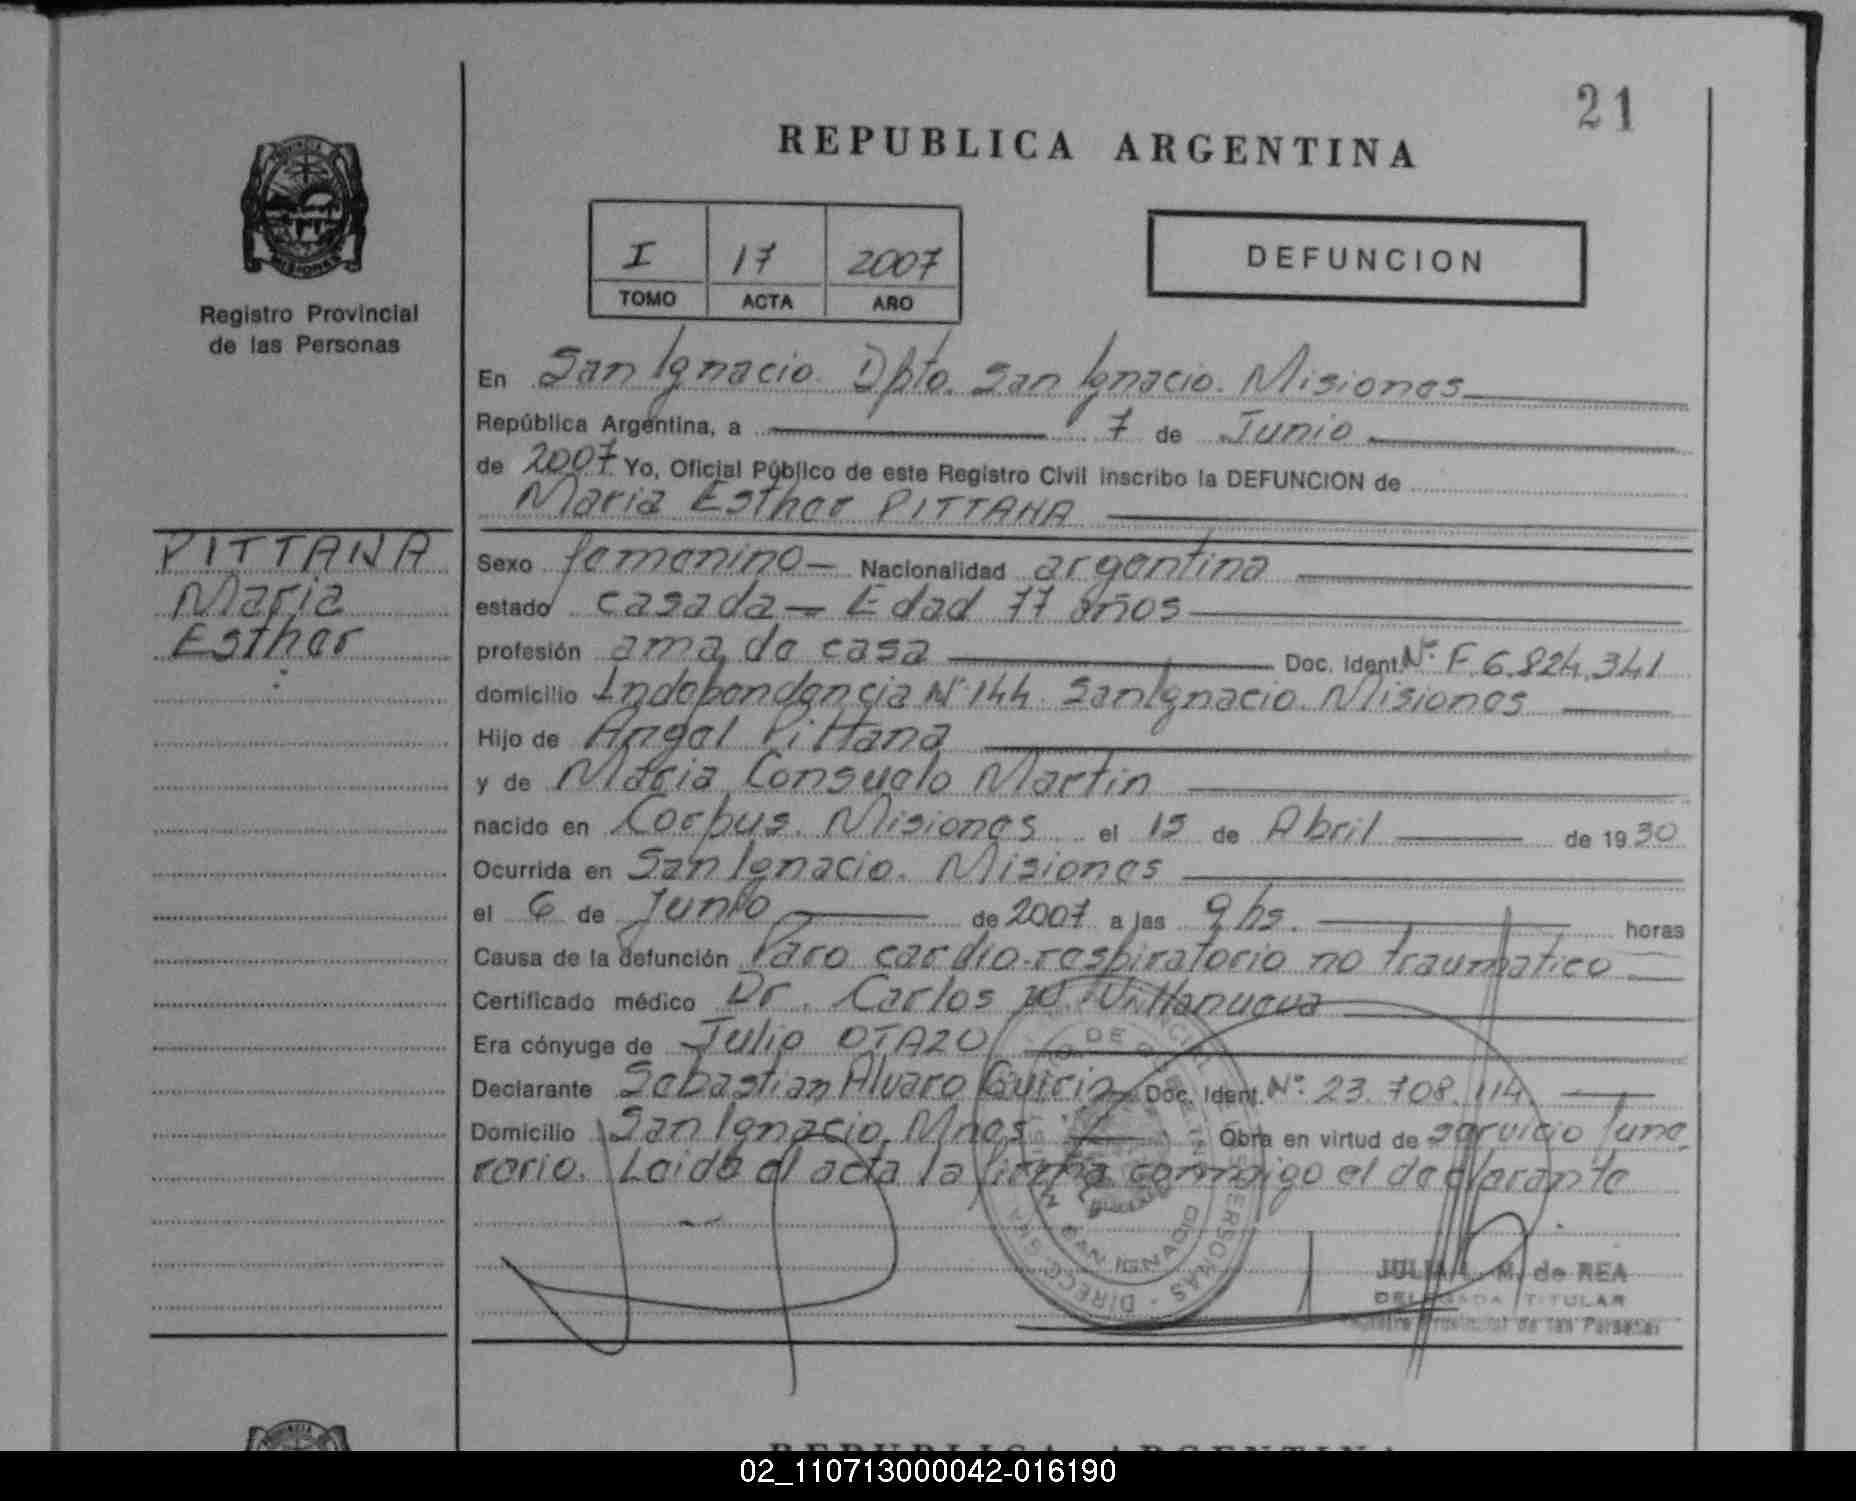 21
REPUBLICA ARGENTINA
PROVINCIA DE
MISIONES
Registro Provincial
de las Personas
I 17 2007
TOMO ACTA AÑO
DEFUNCION
En San Ignacio. Dpto. San Ignacio. Misiones
República Argentina, a 7 de Junio
de 2007. Yo, Oficial Público de este Registro Civil inscribo la DEFUNCION de
Maria Esther PITTANA
PITTANA
Maria
Esther
Sexo femenino Nacionalidad argentina
estado casada - Edad 77 años
profesión ama de casa Doc. Ident. Nº F. 6.824.341
domicilio Independencia Nº 144. San Ignacio. Misiones
Hijo de Angel Pittana
y de Maria Consuelo Martin
nacido en Corpus. Misiones el 15 de Abril de 1930
Ocurrida en San Ignacio. Misiones
el 6 de Junio de 2007 a las 9 hs. horas
Causa de la defunción Paro cardio-respiratorio no traumatico
Certificado médico Dr. Carlos W. Villanueva
Era cónyuge de Julio OTAZO
Declarante Sebastian Alvaro Guirin Doc. Ident. Nº 23.708.114
Domicilio San Ignacio, Mnes Obra en virtud de servicio fune
rario. Leida el acta la firma conmigo el declarante
SAN IGNACIO
JULIA L. M. de REA
DELEGADA TITULAR
Registro Provincial de las Personas
REPUBLICA ARGENTINA
02_110713000042-016190